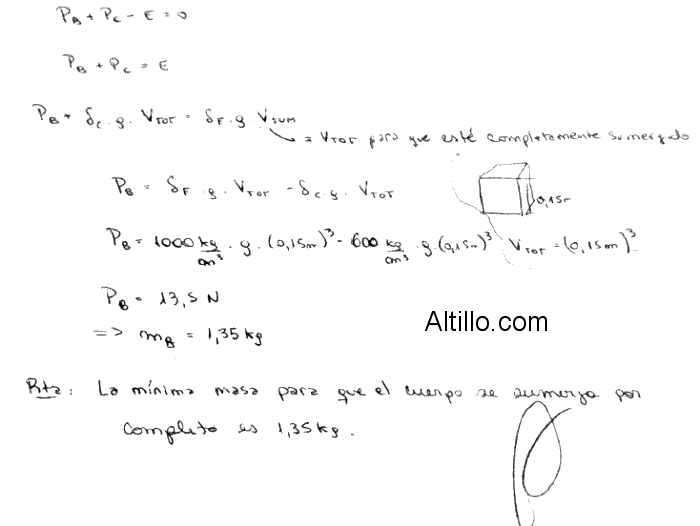 P_B + P_C - E = 0
P_B + P_C = E
P_B + δ_C . g . V_TOT = δ_F . g . V_SUM
= V_TOT para que esté completamente sumergido
P_B = δ_F . g . V_TOT - δ_C . g . V_TOT
0,15m
P_B = 1000 kg/cm³ . g . (0,15m)³ - 600 kg/cm³ . g . (0,15m)³ V_TOT = (0,15m)³
P_B = 13,5 N
=> m_B = 1,35 kg
Altillo.com
Rta: La mínima masa para que el cuerpo se sumerja por
completo es 1,35 kg.